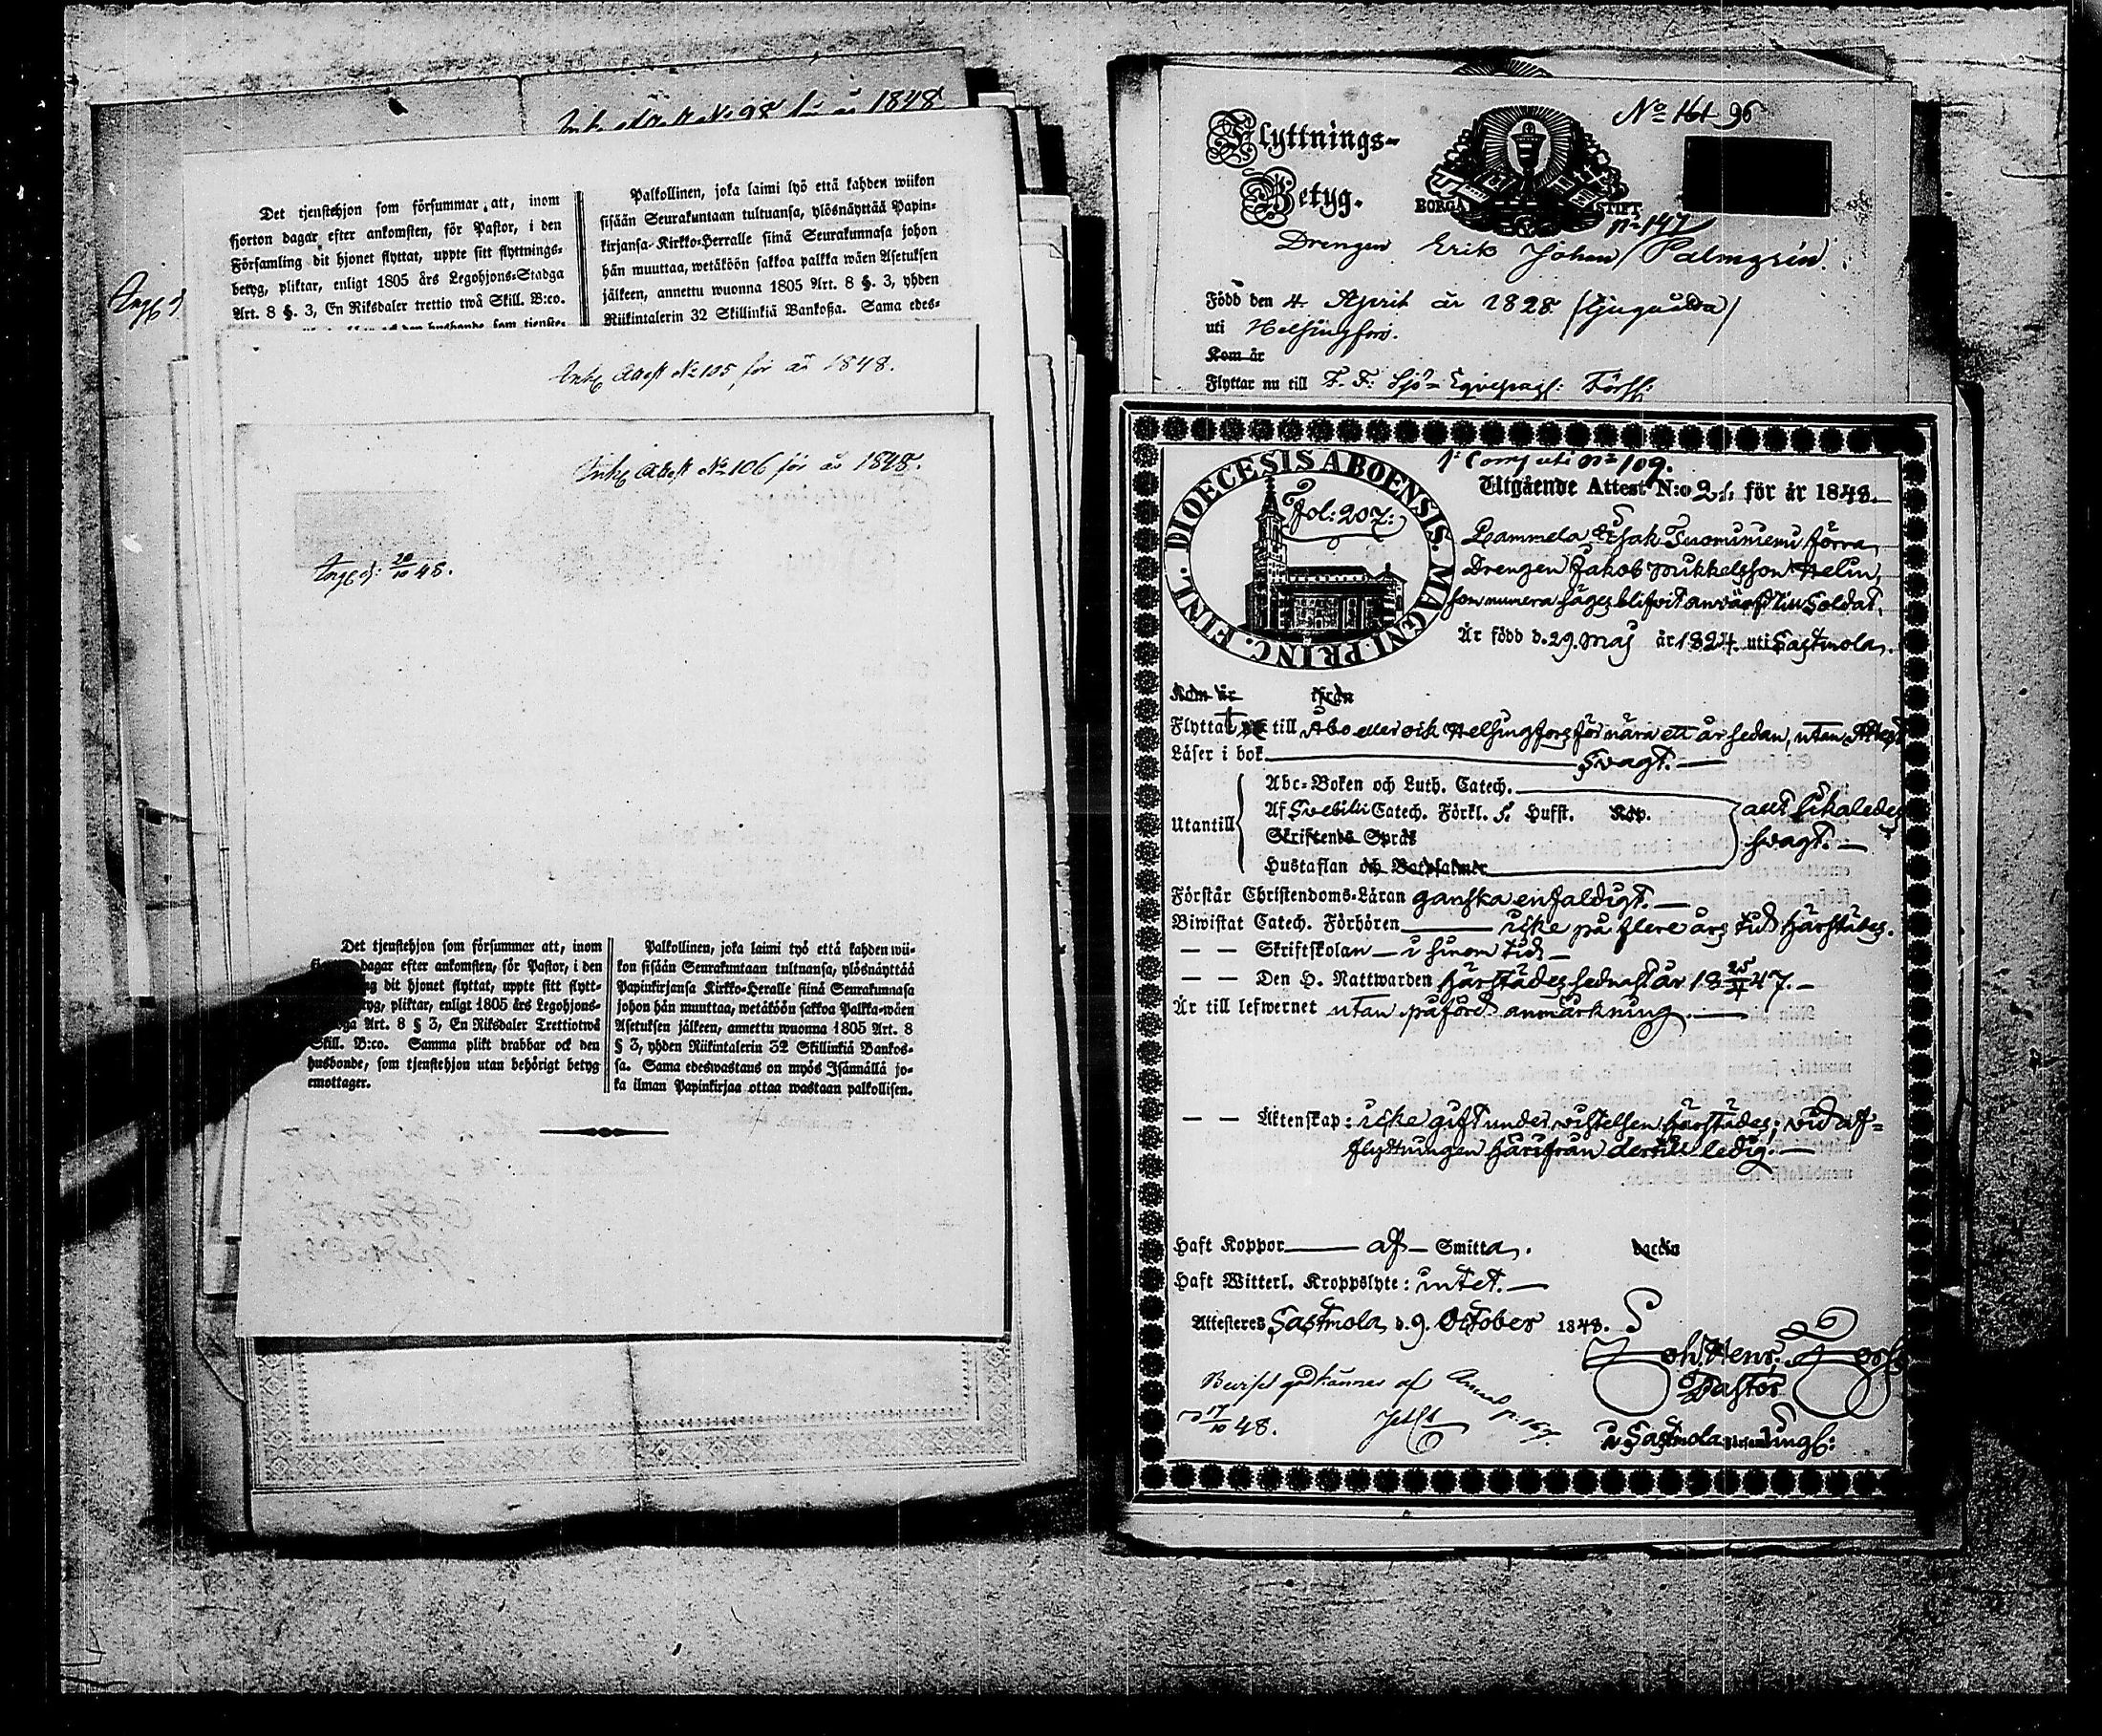 Ink Attest No 98 för år 1848
Det tjenstehjon som försummar att, inom
fjorton dagar efter ankomsten, för Pastor, i den
Församling dit hjonet flyttat, uppte sitt flyttnings-
betyg, pliktar, enligt 1805 års Legohjons-Stadga
Art. 8 §. 3, En Riksdaler trettio twå Skill. B:co.
Palkollinen, joka laimi lyö että kahden wiikon
sisään Seurakuntaan tultuansa, ylösnäyttää Papin-
kirjansa Kirkko-Herralle siinä Seurakunnasa johon
hän muuttaa, wetäköön sakkoa palkka wäen Asetuksen
jälkeen, annettu wuonna 1805 Art. 8 §. 3, yhden
Riikintalerin 32 Skillinkiä Bankoßa. Sama edes-
Ink Attest No 105 för år 1848.
Ink Attest No 106 för år 1848.
Ing d: 20/10 48.
Det tjenstehjon som försummar att, inom
dagar efter ankomsten, för Pastor, i den
dit hjonet flyttat, uppte sitt flytt-
pliktar, enligt 1805 års Legohjons-
Art. 8 § 3, En Riksdaler Trettiotwå
Skill. B:co. Samma plikt drabbar ock den
husbonde, som tjenstehjon utan behörigt betyg
emottager.
Palkollinen, joka laimi lyö että kahden wii-
kon sisään Seurakuntaan tultuansa, ylösnäyttää
Papinkirjansa Kirkko-Heralle siinä Seurakunnasa
johon hän muuttaa, wetäköön sakkoa Palkka-wäen
Asetuksen jälkeen, annettu wuonna 1805 Art. 8
§ 3, yhden Riikintalerin 32 Skillinkiä Bankos-
sa. Sama edeswastaus on myös Isännällä jo-
ka ilman Papinkirjaa ottaa wastaan palkollisen.
No 161 96
Flyttnings-
Betyg.
BORGÅ STIFT
No 147
Drengen Erik Johan Palmgrén.
Född den 4 April år 1828
uti Helsingfors.
Kom år
Flyttar nu till F. F. Sjö-Equipags: Förs:
No 109.
Utgående Attest N:o 21. för år 1848.
DIOECESIS ABOENSIS. MAGNI. PRINC. FINL.
Fol: 207:
Isak Tuominiemi förra
Drengen Jakob Mikkelsson Helin,
som numera säges blifvit till Soldat,
Är född d. 29. Maj år 1824. uti Sastmola.
Kom år från
Flyttat till Åbo eller ock Helsingfors för nära ett år sedan, utan Attest
Läser i bok svagt.
Utantill
Abc-Boken och Luth. Catech.
Af Svebilii Catech. Förkl. 5. Hufst. Kap.
Skriftens Språk
Hustaflan och Botpsalmer
allt likaledes
svagt.
Förstår Christendoms-Läran ganska enfaldigt.
Biwistat Catech. Förhören icke på flere års tid härstädes.
— — Skriftskolan i sinom tid
— — Den H. Nattwarden härstädes sednast år 18 47.
Är till lefwernet utan påförd anmärkning.
— — Äktenskap: icke gift under vistelsen härstädes; vid af-
flyttningen härifrån dertill ledig.
Haft Koppor af Smitta.
Haft Witterl. Kroppslyte: intet.
Attesteras Sastmola, d. 9. October 1848.
Joh. Henr.
Pastor
i Sastmola
Beviset godkännes af
d 17/10 48.